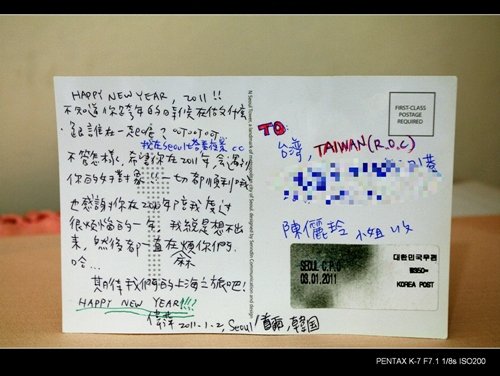 HAPPY NEW YEAR, 2011 !!
不知道你跨年的時候在做什麼
跟誰在一起呢?
我在Seoul
不管怎樣，希望你在2011年會遇到
你的好對象!! 一切都順利哦
也感謝你在2010年陪我度過
很煩惱的一年，我總是想不出
來，然後都一直在麻煩你們。
哈...
期待我們的上海之旅吧!
HAPPY NEW YEAR!!!!
2011.1.2, Seoul/首爾,韓国
FIRST-CLASS
POSTAGE
REQUIRED
TO:
台灣, TAIWAN (R.O.C)
陳儷玲 小姐 收
SEOUL C.P.O
03.01.2011
대한민국우편
KOREA POST
PENTAX K-7 F7.1 1/8s ISO200